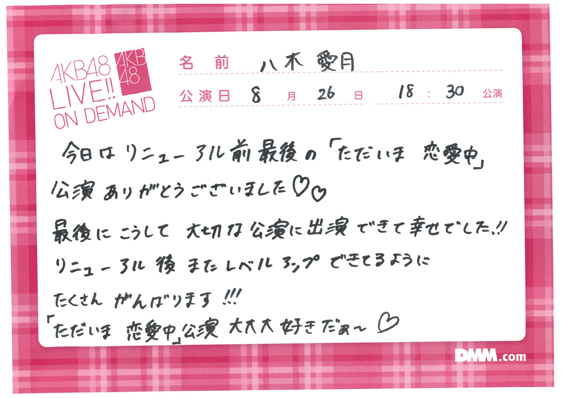 AKB48
LIVE!!
ON DEMAND
AKB
48
名前 八木 愛月
公演日 8 月 26 日 18 : 30 公演
今日は リニューアル前 最後の「ただいま 恋愛中」
公演 ありがとうございました♡♡
最後に こうして 大切な公演に出演できて幸せでした!!
リニューアル後 またレベルアップできてるように
たくさん がんばります!!!
「ただいま 恋愛中」公演 大大大好きだぁ〜♡
DMM.com